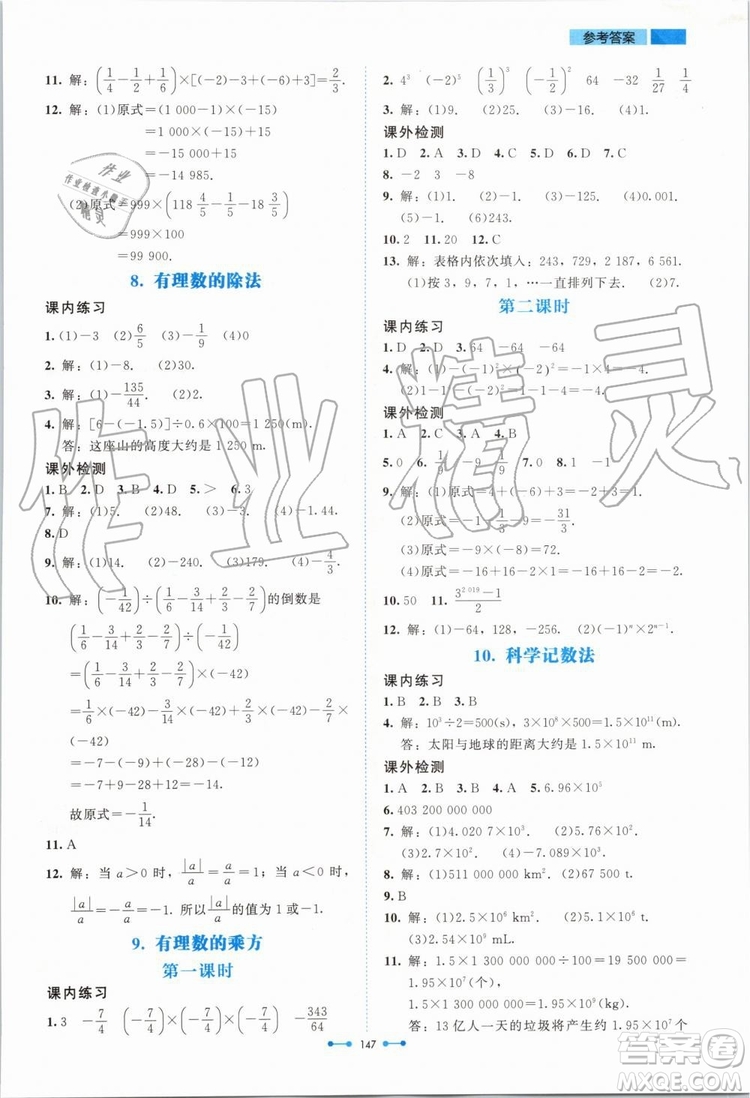 参考答案
11. 解：(1/4−1/2+1/6)×[−(−2)−(+6)+3]=2/3.
12. 解：(1)原式=(1 000−1)×(−15)
=1 000×(−15)+15
=−15 000+15
=−14 985.
(2)原式=999×(118 4/5−1/5−18 3/5)
=999×100
=99 900.
8. 有理数的除法
课内练习
1. (1)−3 (2)6/5 (3)−1/9 (4)0
2. 解：(1)−8. (2)30.
3. 解：(1)−135/44. (2)2.
4. 解：[6−(−1.5)]÷0.6×100=1 250(m).
答：这座山的高度大约是1 250 m.
课外检测
1. B 2. D 3. B 4. D 5. > 6. 3
7. 解：(1)5. (2)48. (3)−3. (4)−1.44.
8. D
9. 解：(1)2. (2)−240. (3)179. (4)−4/3.
10. 解：(−1/42)÷(1/6−3/14+2/3−2/7)的倒数是
(1/6−3/14+2/3−2/7)÷(−1/42)
=(1/6−3/14+2/3−2/7)×(−42)
=1/6×(−42)−3/14×(−42)+2/3×(−42)−2/7×
(−42)
=−7−(−9)+(−28)−(−12)
=−7+9−28+12
=−14.
故原式=−1/14.
11. A
12. 解：当a>0时，|a|/a=a/a=1；当a<0时，|a|/a
=−a/a=−1. 所以|a|/a的值为1或−1.
9. 有理数的乘方
第一课时
课内练习
1. 3 −7/4 (−7/4)×(−7/4)×(−7/4) −343/64
2. 4³ (−2)⁴ (1/3)³ (−1/2)² 64 −32 1/27 1/4
3. 解：(1)9. (2)25. (3)−16. (4)1.
课外检测
1. D 2. A 3. D 4. B 5. D 6. D 7. C
8. −2 3 −8
9. 解：(1)1. (2)−1/27. (3)−4. (4)0.001.
(5)−1. (6)243.
10. 2 11. 20 12. C
13. 解：表格内依次填入：243，729，2 187，6 561.
(1)按3，9，7，1，…一直排列下去. (2)7.
第二课时
课内练习
1. D 2. D 3. 64 −64 −64
4. 解：(1)−1×(−2)²=−1×4=−4.
(2)1−1−(−2)²×1=−4×1=−4.
课外检测
1. A 2. C 3. A 4. A
5. 0 6. −9 7. 8 8. 0或1
9. 解：(1)原式=−8+9×4=28.
(2)原式=−1−1/3−9=−31/3.
(3)原式=−16+16−1=−1.
(4)原式=−16+16−2×(−36)=72.
10. 50 11. (3²⁰¹⁹−1)/2
12. 解：(1)−64，128，−256. (2)(−1)ⁿ×2ⁿ⁻¹.
10. 科学记数法
课内练习
1. B 2. B 3. B
4. 解：10³÷2=500(s)，3×10⁸×500=1.5×10¹¹(m).
答：太阳与地球的距离大约是1.5×10¹¹ m.
课外检测
1. A 2. C 3. B 4. A 5. 6.96×10⁵
6. 403 200 000 000
7. 解：(1)4.020 7×10⁵. (2)5.76×10⁶.
(3)2×10¹⁰. (4)−7.089×10².
8. 解：(1)511 000 000 km². (2)67 500 t.
9. B
10. 解：(1)2.5×10⁵ km². (2)5×10⁶.
(3)2.54×10⁹ mL.
11. 解：1.5×1 300 000 000=1 950 000 000=
1.95×10⁹(个)，
1.5×1 300 000 000×0.1=195 000 000=
1.95×10⁸(千克).
答：13亿人一天的垃圾将产生约1.95×10⁸千克
147
作业
作业精灵
答案圈
MXQE.COM